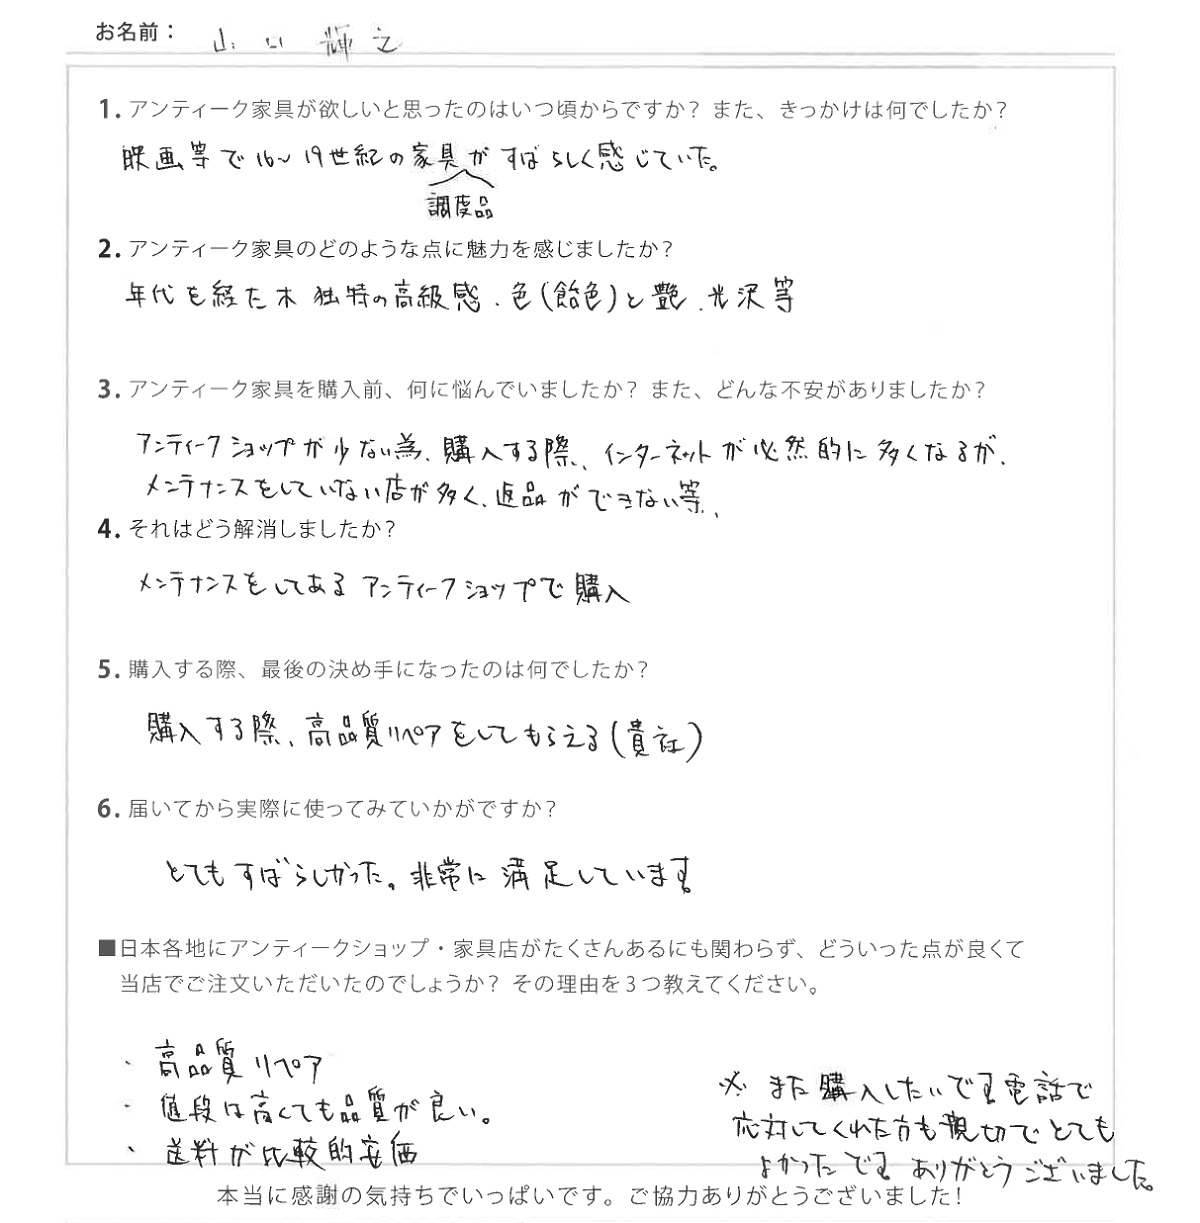 お名前： 山口 輝之
1. アンティーク家具が欲しいと思ったのはいつ頃からですか？ また、きっかけは何でしたか？
映画等で16〜19世紀の家具がすばらしく感じていた。
調度品
2. アンティーク家具のどのような点に魅力を感じましたか？
年代を経た木独特の高級感、色(飴色)と艶、光沢等
3. アンティーク家具を購入前、何に悩んでいましたか？ また、どんな不安がありましたか？
アンティークショップが少ない為、購入する際、インターネットが必然的に多くなるが、
メンテナンスをしていない店が多く、返品ができない等、
4. それはどう解消しましたか？
メンテナンスをしてあるアンティークショップで購入
5. 購入する際、最後の決め手になったのは何でしたか？
購入する際、高品質リペアをしてもらえる(貴社)
6. 届いてから実際に使ってみていかがですか？
とてもすばらしかった。非常に満足しています。
■日本各地にアンティークショップ・家具店がたくさんあるにも関わらず、どういった点が良くて
当店でご注文いただいたのでしょうか？ その理由を３つ教えてください。
・ 高品質リペア
・ 値段は高くても品質が良い。
・ 送料が比較的安価
※ また購入したいです。電話で
応対してくれた方も親切でとても
よかったです。ありがとうございました。
本当に感謝の気持ちでいっぱいです。ご協力ありがとうございました！